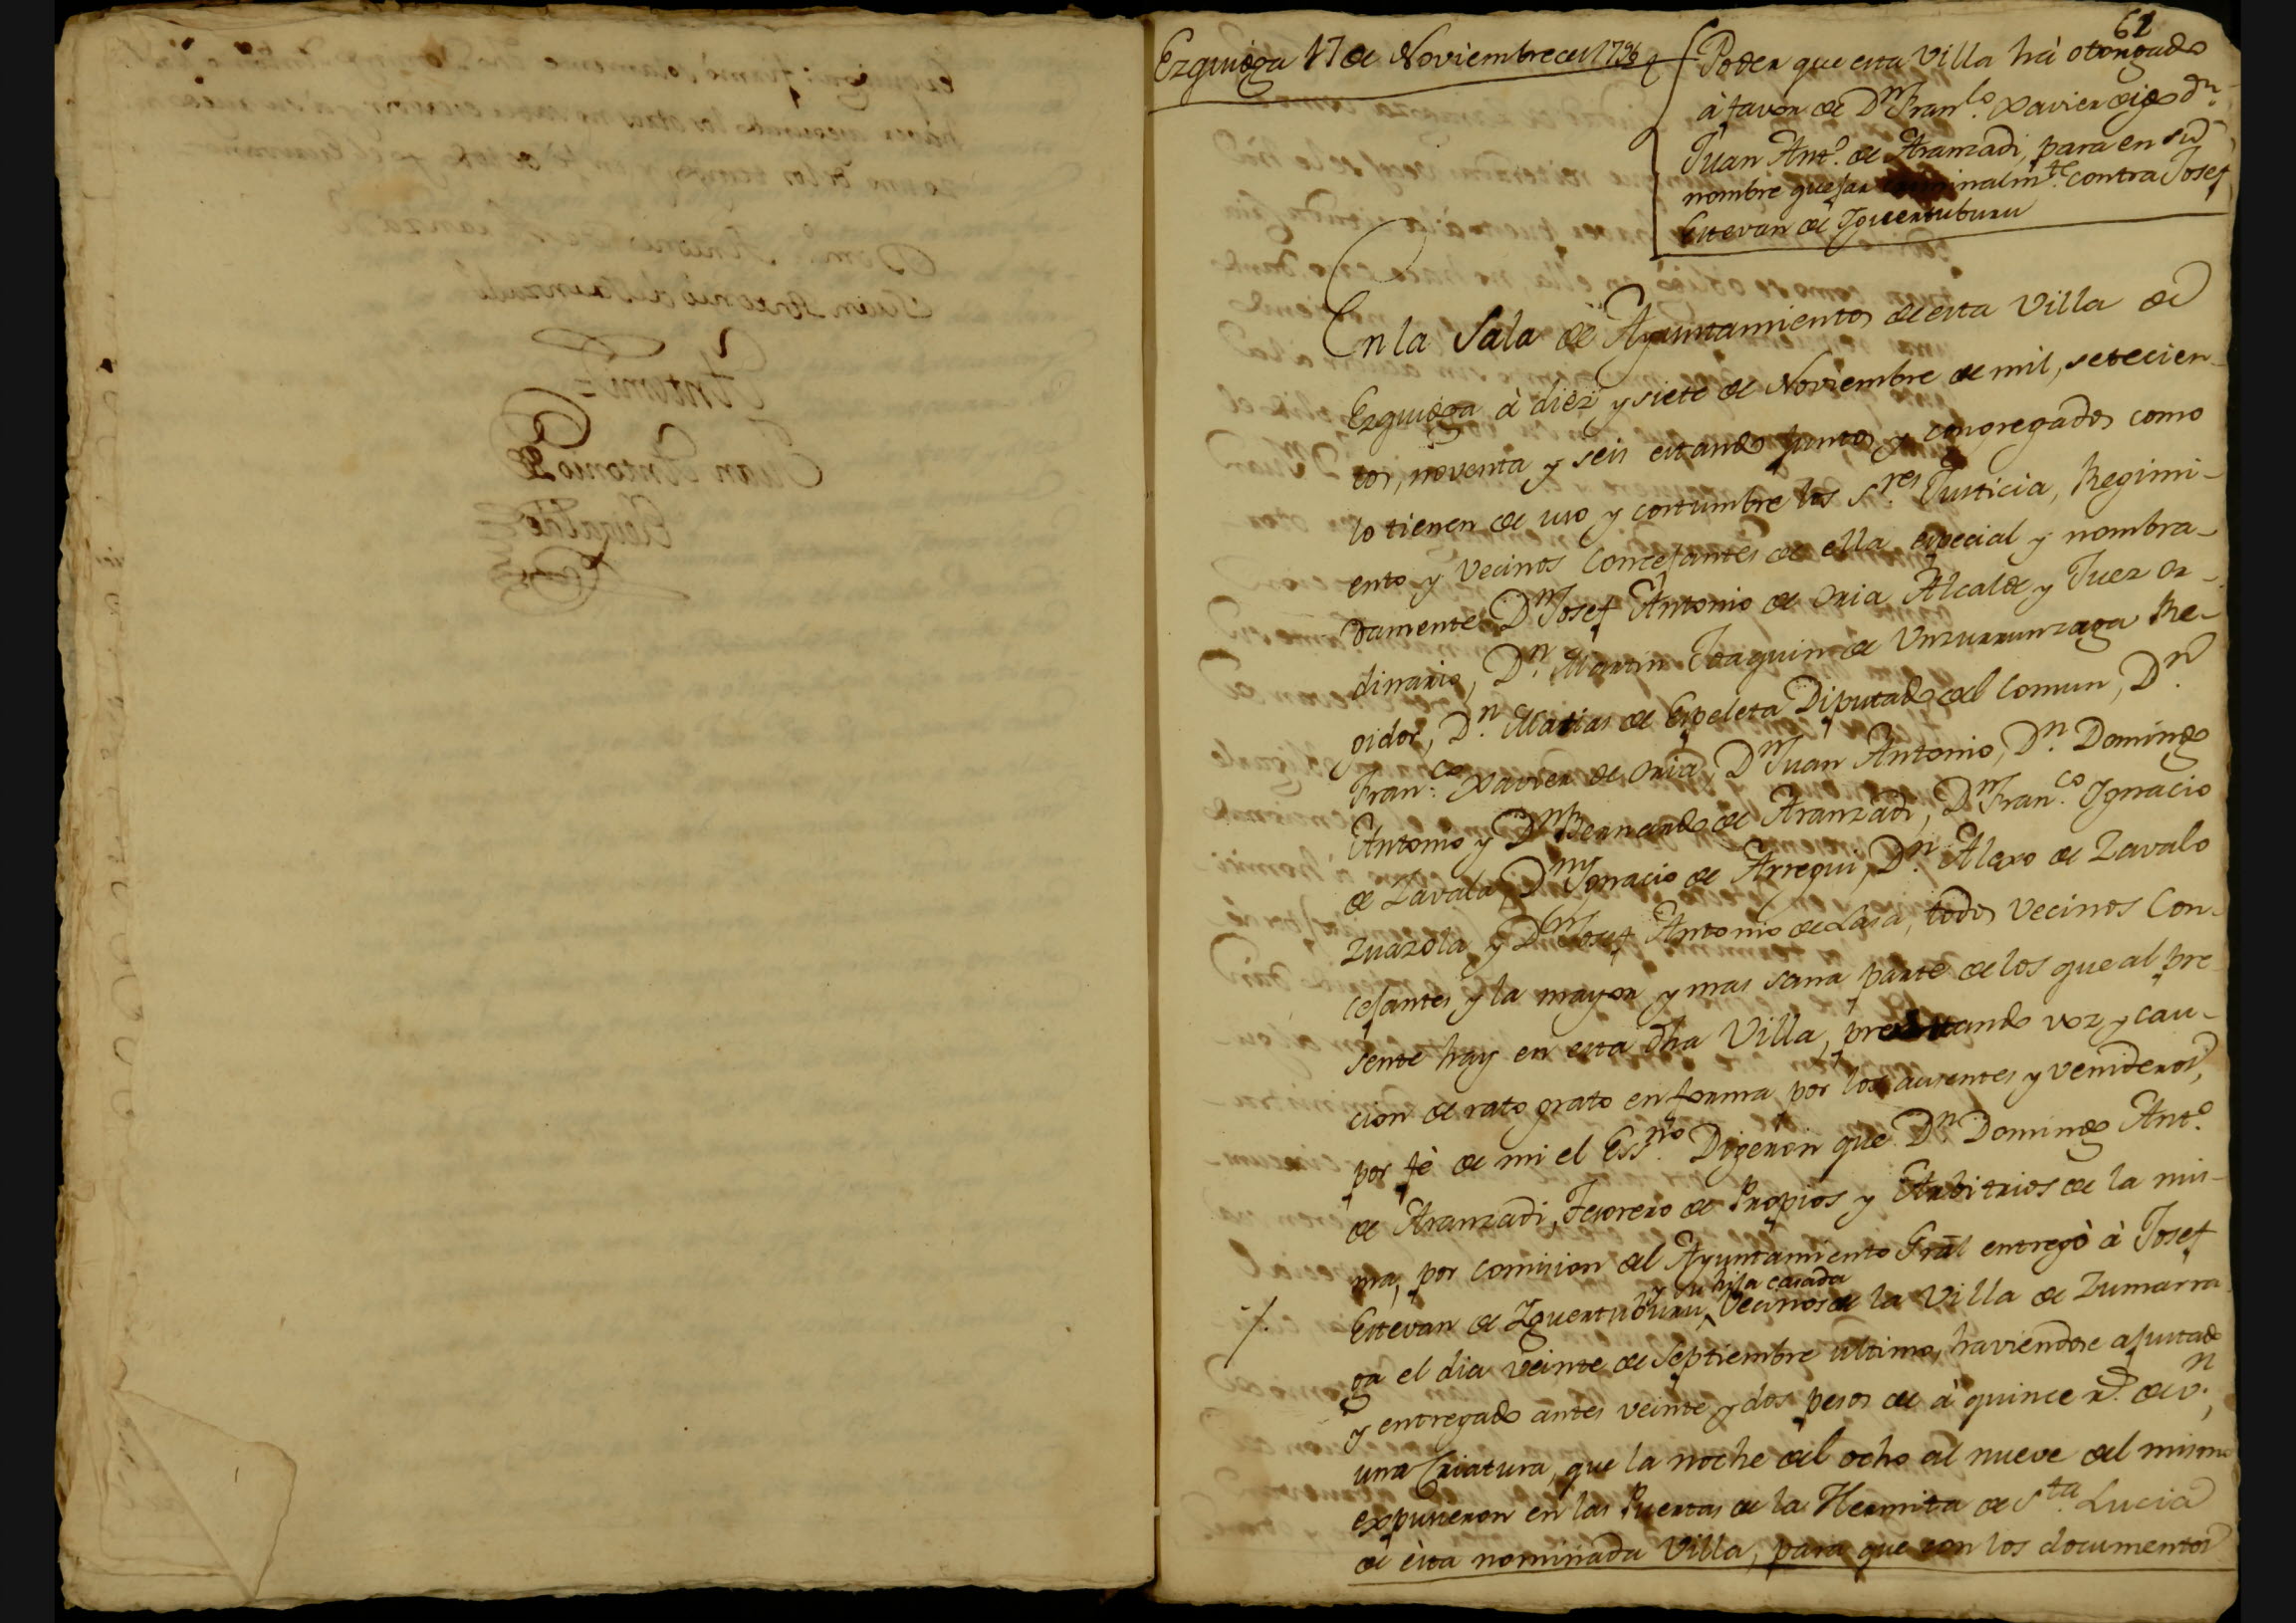 61
Ezquioga 17 de Noviembre de 1796
Poder que esta Villa há otorgado
à favor de Dn. Franco. Xavier digo dn.
Juan Anto. de Aranzadi, para en su
nombre quejar criminalmte. contra Josef
Estevan de Yguertuburu
En la Sala de Ayuntamientos de esta Villa de
Ezquioga à diéz y siete de Noviembre de mil, setecien-
tos, noventa y seis estando juntos y congregados como
lo tienen de uso y costumbre los Sres. Justicia, Regimi-
ento y Vecinos Concejantes de ella especial y nombra-
damente Dn. Josef Antonio de Oria Alcalde y Juez or-
dinario, Dn. Martin Joaquin de Unzurrunzaga Re-
gidor, Dn. Matias de Espeleta Diputado del Comun, Dn.
Franco. Xavier de Oria, Dn. Juan Antonio, Dn. Domingo
Antonio y Dn. Bernardo de Aranzadi, Dn. Franco. Ygnacio
de Zavala, Dn. Ygnacio de Arregui, Dn. Alexo de Zavalo
Zuazola, y Dn. Josef Antonio de Lasa, todos Vecinos Con-
cejantes y la mayor y mas sana parte de los que al pre
sente hay en esta dha Villa, prestando voz y cau-
cion de rato grato en forma por los ausentes y venideros,
por fé de mi el Essno. Digeron que Dn. Domingo Anto.
de Aranzadi, Tesorero de Propios y Arbitrios de la mis-
ma, por comision del Ayuntamiento Gral entregò à Josef
y su hija casada
Estevan de Yguertuburu, Vecinos de la Villa de Zumarra
ga el dia veinte de Septiembre ultimo, haviendose ajustado
y entregado antes veinte y dos pesos de à quince rs. de vn.,
una Criatura, que la noche del ocho al nueve del mismo
expusieron en las Puertas de la Hermita de Sta. Lucia
de èsta nominada Villa, para que con los documentos